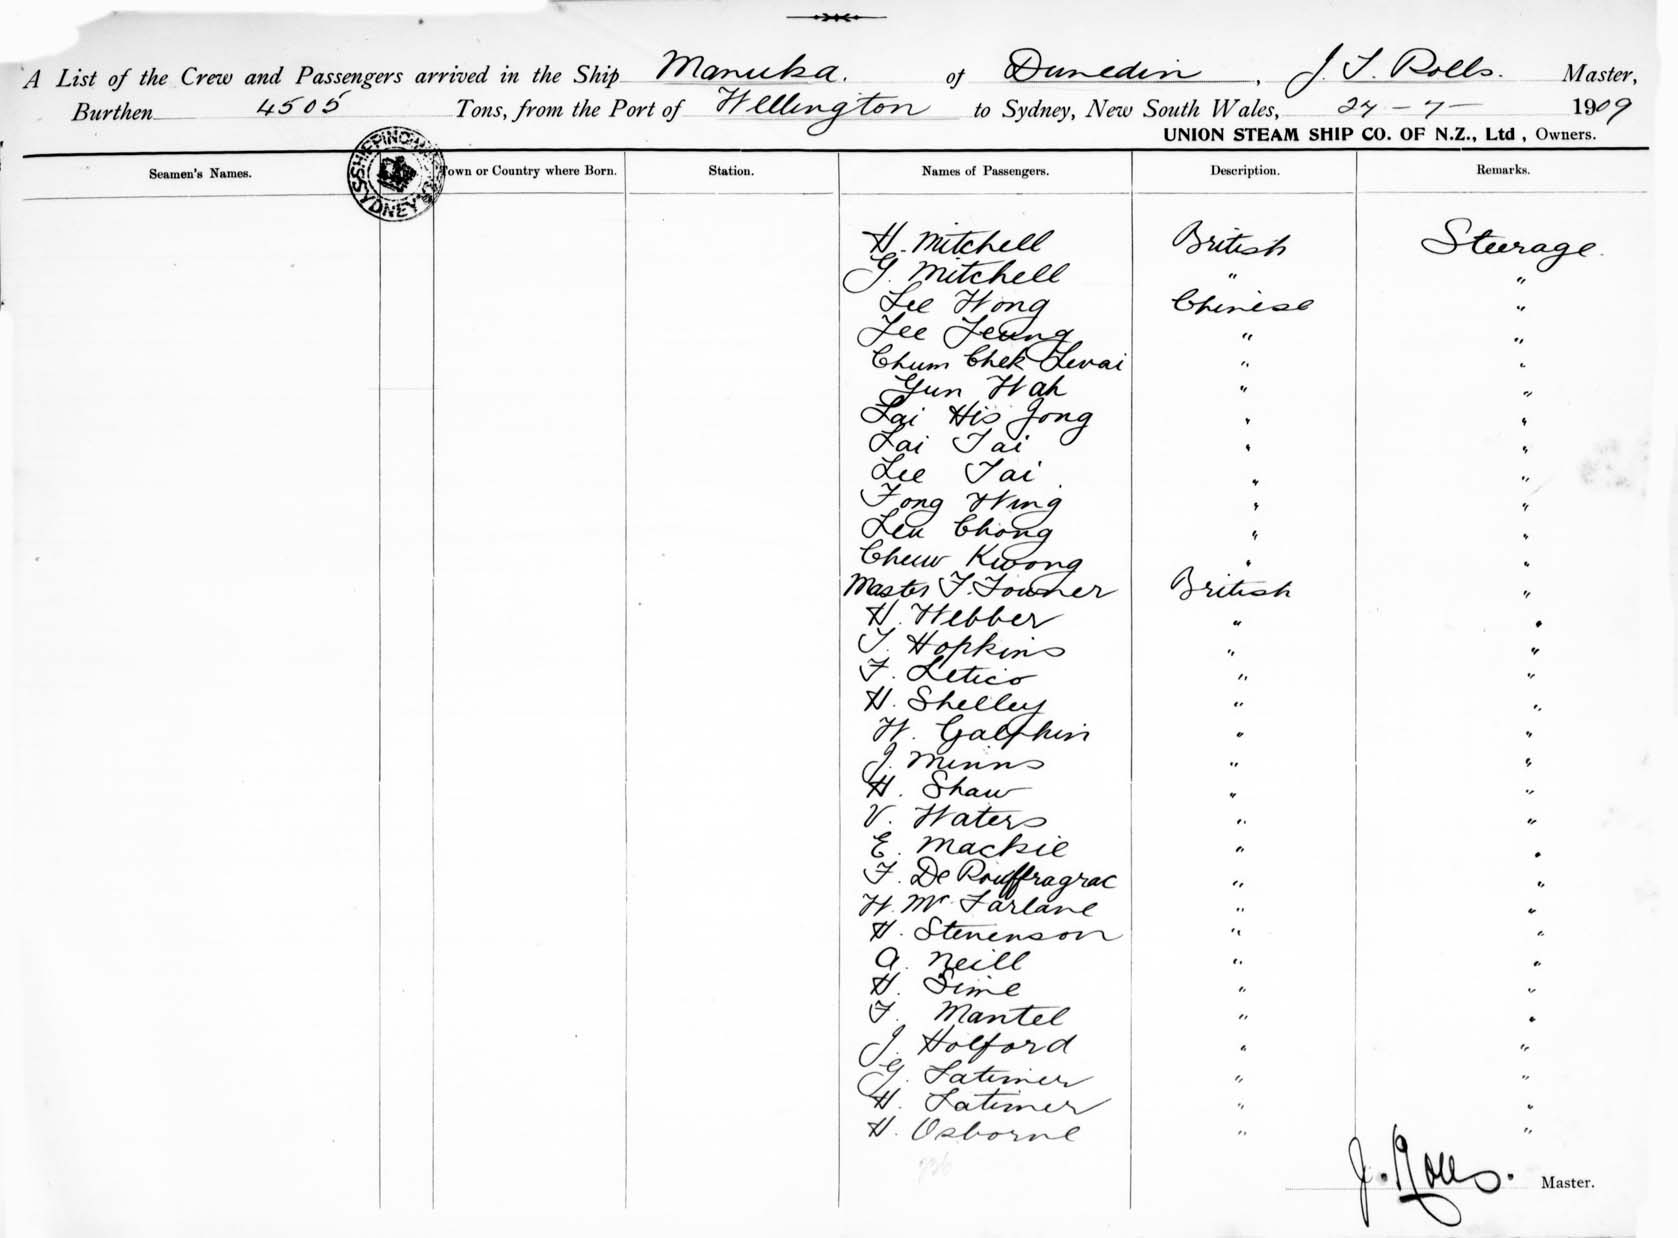 A List of the Crew and Passengers arrived in the Ship Manuka. of Dunedin, J. T. Rolls. Master,
Burthen 4505 Tons, from the Port of Wellington to Sydney, New South Wales, 27-7- 1909
UNION STEAM SHIP CO. OF N.Z., Ltd, Owners.
SHIPPING SYDNEY
Seamen's Names. Town or Country where Born. Station. Names of Passengers. Description. Remarks.
H. Mitchell British Steerage.
G. Mitchell " "
Lee Wong Chinese "
Lee Leung " "
Chum Chek " "
Yun Wah " "
Lai His Jong " "
Lai Tai " "
Lee Tai " "
Fong Wing " "
Leu Chong " "
Chew Kwong " "
Master F. British "
H. Webber " "
T. Hopkins " "
F. Letico " "
H. Shelley " "
W. Galphin " "
J. Minns " "
H. Shaw " "
V. Waters " "
E. Mackie " "
F. De " "
W. McFarlane " "
H. Stevenson " "
A. Neill " "
H. Sime " "
F. Mantel " "
J. Holford " "
G. Latimer " "
H. Latimer " "
H. Osborne " "
J. Rolls. Master.